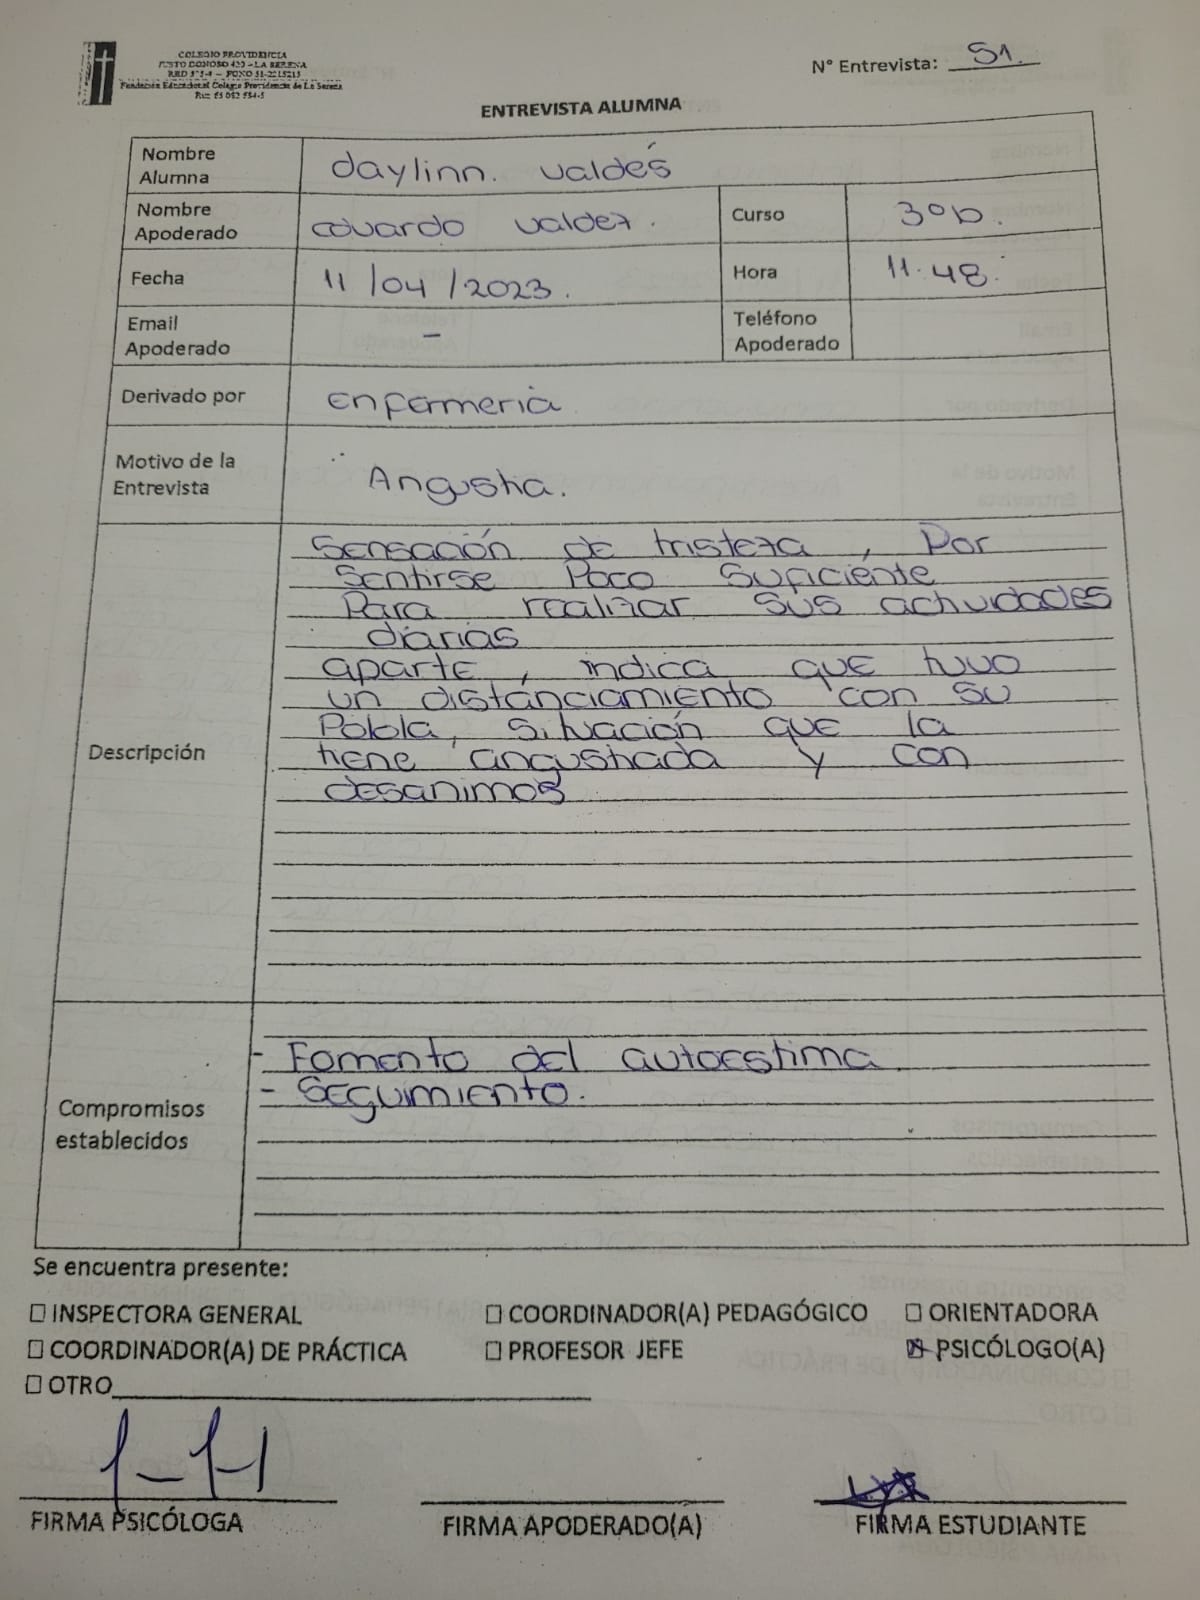 COLEGIO PROVIDENCIA
JUSTO DONOSO 420 - LA SERENA
Fundación Educacional Colegio Providencia de La Serena
N° Entrevista: 51.
ENTREVISTA ALUMNA
Nombre Alumna daylinn. valdés
Nombre Apoderado eduardo valdez. Curso 3°b.
Fecha 11/04/2023. Hora 11.48.
Email Apoderado - Teléfono Apoderado
Derivado por enfermeria
Motivo de la Entrevista Angustia.
Descripción
Sensación de tristeza, Por
Sentirse Poco Suficiente
Para realizar sus actividades
diarias
aparte, indica que tuvo
un distanciamiento con su
Polola, Situación que la
tiene angustiada y con
desanimos
Compromisos establecidos
- Fomento del autoestima
- Seguimiento.
Se encuentra presente:
☐ INSPECTORA GENERAL ☐ COORDINADOR(A) PEDAGÓGICO ☐ ORIENTADORA
☐ COORDINADOR(A) DE PRÁCTICA ☐ PROFESOR JEFE ☒ PSICÓLOGO(A)
☐ OTRO
FIRMA PSICÓLOGA FIRMA APODERADO(A) FIRMA ESTUDIANTE